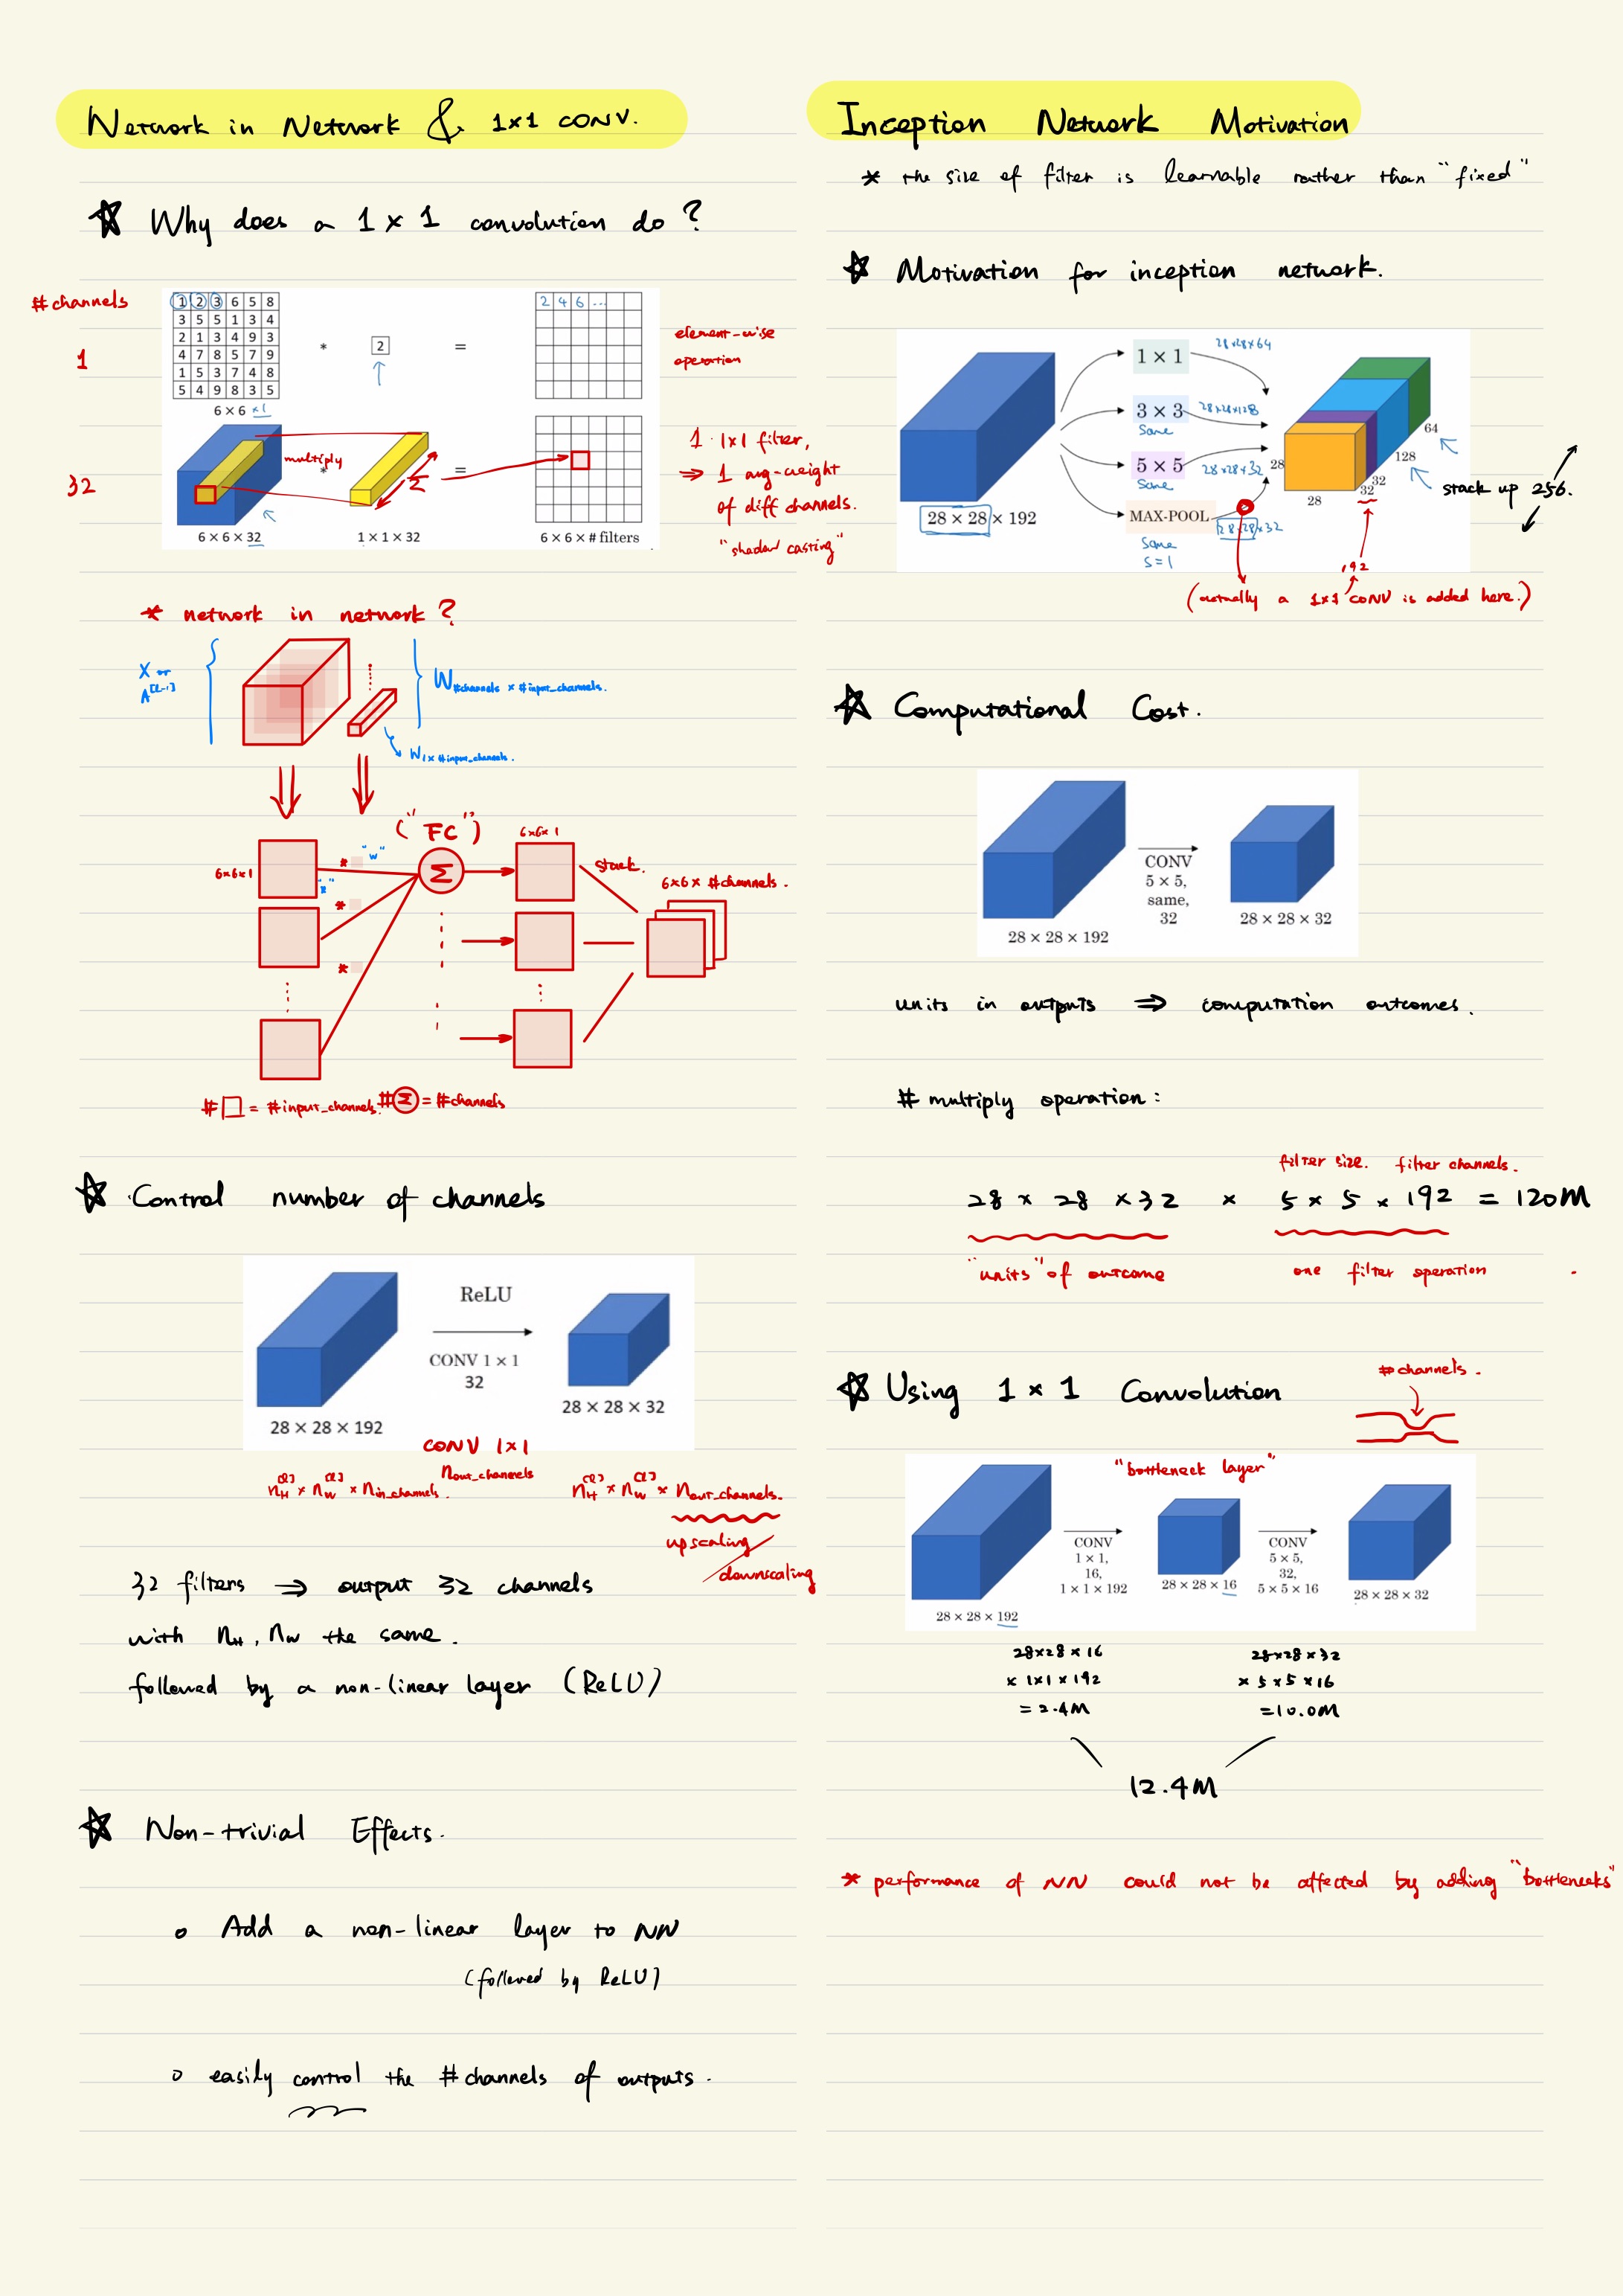 Network in Network & 1x1 CONV.
☆ Why does a 1 x 1 convolution do ?
# channels
1
1 2 3 6 5 8
3 5 5 1 3 4
2 1 3 4 9 3
4 7 8 5 7 9
1 5 3 7 4 8
5 4 9 8 3 5
6 × 6 ×1
*
2
=
2 4 6 ...
element-wise
operation
32
multiply
*
=
Σ
6 × 6 × 32
1 × 1 × 32
6 × 6 × # filters
1 1x1 filter,
⇒ 1 avg-weight
of diff channels.
"shadow casting"
* network in network ?
X or
A[l-1]
W #channels x #input_channels.
W 1 x #input_channels.
("FC")
6x6x1
* "w"
Σ
6x6x1
stack.
6x6x #channels.
*
*
#□ = #input_channels.
#Σ = #channels
☆ Control number of channels
ReLU
CONV 1 × 1
32
28 × 28 × 192
28 × 28 × 32
CONV 1x1
nout_channels
nH[l] x nW[l] x nin_channels.
nH[l] x nW[l] x nout_channels.
upscaling
/ downscaling
32 filters ⇒ output 32 channels
with nH, nW the same.
followed by a non-linear layer (ReLU)
☆ Non-trivial Effects.
o Add a non-linear layer to NN
(followed by ReLU)
o easily control the #channels of outputs.
Inception Network Motivation
* the size of filter is learnable rather than "fixed"
☆ Motivation for inception network.
1 × 1
28x28x64
3 × 3
Same
28x28x128
5 × 5
Same
28x28x32
MAX-POOL
Same
S=1
28x28x32
28 × 28 × 192
28
28
32
32
128
64
192
stack up 256.
(actually a 1x1 CONV is added here.)
☆ Computational Cost.
CONV
5 × 5,
same,
32
28 × 28 × 192
28 × 28 × 32
units in outputs ⇒ computation outcomes.
# multiply operation:
filter size. filter channels.
28 x 28 x 32 x 5 x 5 x 192 = 120M
"units" of outcome
one filter operation
☆ Using 1 x 1 Convolution
#channels.
"bottleneck layer"
CONV
1 × 1,
16,
1 × 1 × 192
28 × 28 × 16
CONV
5 × 5,
32,
5 × 5 × 16
28 × 28 × 32
28 × 28 × 192
28x28x16
x 1x1x192
= 2.4M
28x28x32
x 5x5x16
=10.0M
12.4M
* performance of NN could not be affected by adding "bottlenecks"